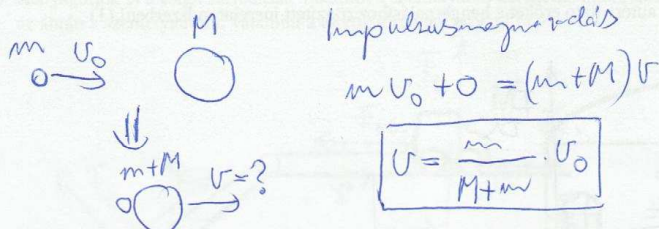 m v₀ M
Impulzusmegmaradás
m v₀ + 0 = (m+M) v
m+M v=?
v = m/(M+m) · v₀